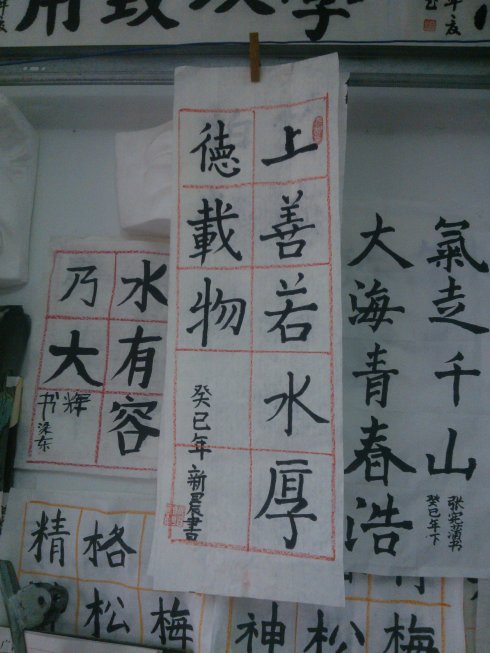 上善若水厚
德載物
癸巳年 新 書
氣走千山
癸巳年下
大海青春浩
水有容
乃大
精格
松梅
神松梅